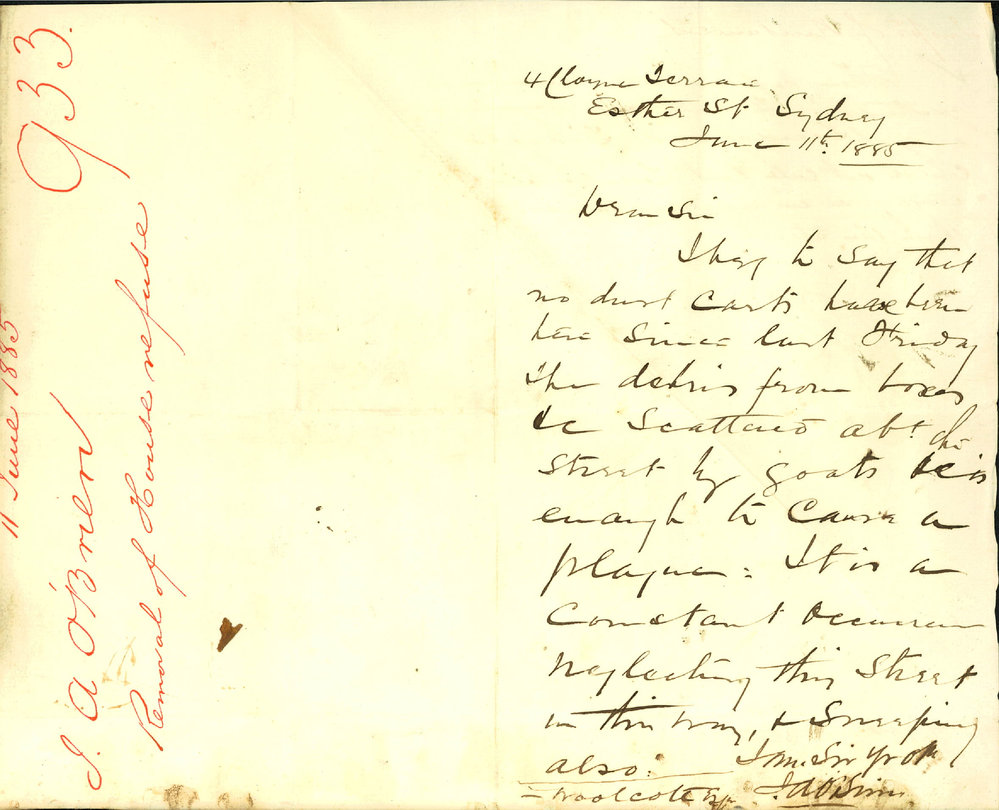 933.
11 June 1885
J. A O'Brien
Removal of House refuse
4 Cloyne Terrace
Esther St Sydney
June 11th 1885
Dear Sir
I beg to say that
no dust carts have been
here since last Friday
The debris from boxes
&c scattered abt the
street by goats &c is
enough to cause a
plague: It is a
constant occurrence
neglecting this street
in this way, & sweeping
also.
I am Sir yr ob
J A O'Brien
Woolcott Esq